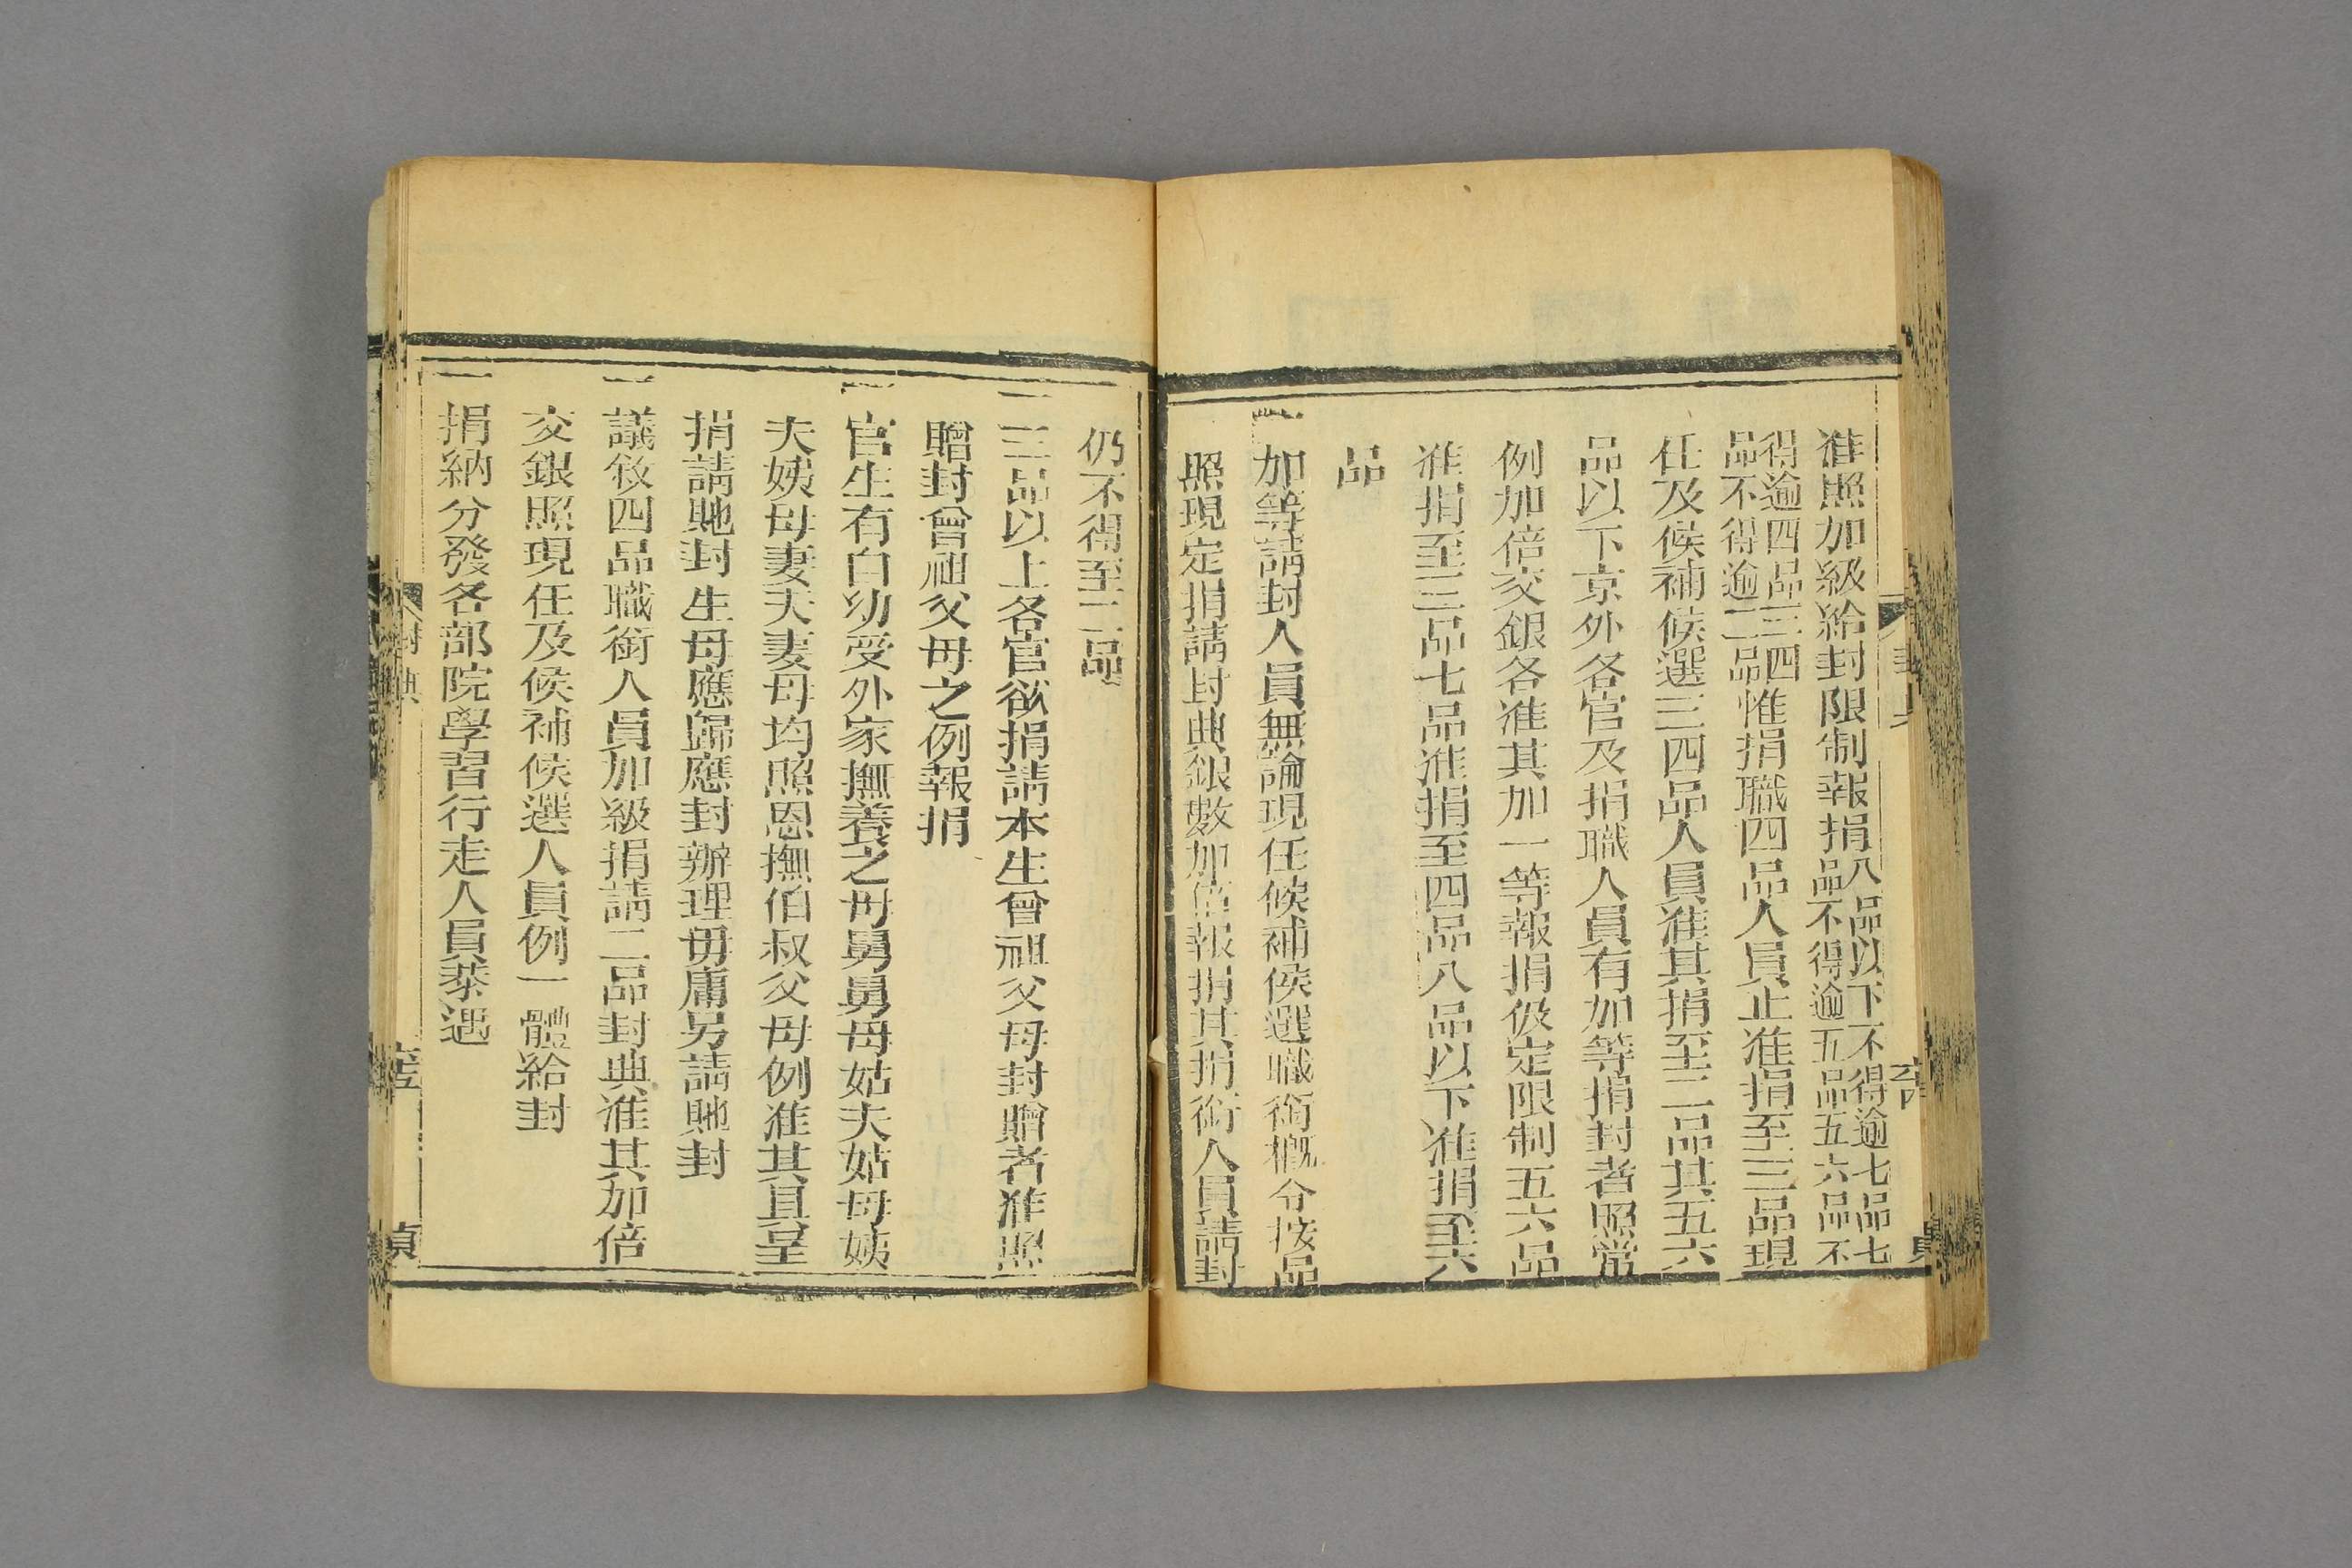 准照加級給封限制報捐八品以下不得逾七品七
品不得逾五品五六品不
得逾四品三四
品不得逾二品惟捐職四品人員止准捐至三品現
任及候補候選三四品人員准其捐至二品其五六
品以下京外各官及捐職人員有加等捐封者照常
例加倍交銀各准其加一等報捐仍定限制五六品
准捐至三品七品准捐至四品八品以下准捐至六
品
一加等請封人員無論現任候補候選職銜概分按品
照現定捐請封典銀數加倍報捐其捐銜人員請封
仍不得至二品
一三品以上各官欲捐請本生曾祖父母封贈者准照
贈封曾祖父母之例報捐
一官生有自幼受外家撫養之母舅舅母姑夫姑母姨
夫姨母妻夫妻母均照恩撫伯叔父母例准其具呈
捐請貤封生母應歸應封辦理毋庸另請貤封
一議敘四品職銜人員加級捐請二品封典准其加倍
交銀照現任及候補候選人員例一體給封
一捐納分發各部院學習行走人員恭遇
封典